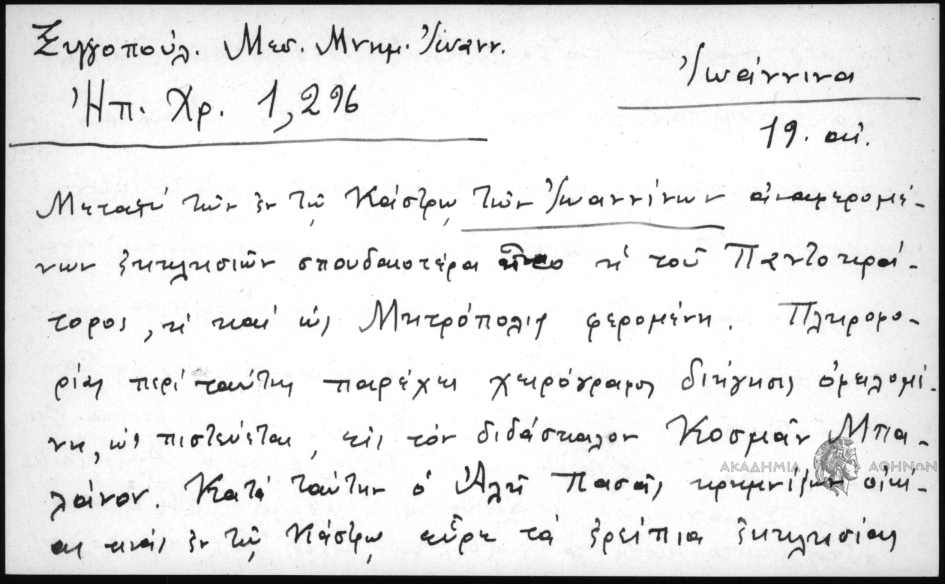 Ξυγγοπούλ. Μεσ. Μνημ. Ἰωανν.
Ἠπ. Χρ. 1,296
Ἰωάννινα
19. αἰ.
Μεταξὺ τῶν ἐν τῷ Κάστρῳ τῶν Ἰωαννίνων ἀναφερομέ-
νων ἐκκλησιῶν σπουδαιοτέρα ἦτο ἡ τοῦ Παντοκρά-
τορος, ἡ καὶ ὡς Μητρόπολις φερομένη. Πληροφο-
ρίας περὶ ταύτης παρέχει χειρόγραφος διήγησις ὀφειλομέ-
νη, ὡς πιστεύεται, εἰς τὸν διδάσκαλον Κοσμᾶν Μπα-
λάνον. Κατὰ ταύτην ὁ Ἀλῆ Πασᾶς κρημνίζων οἰκί-
ας τινὰς ἐν τῷ Κάστρῳ εὗρε τὰ ἐρείπια ἐκκλησίας
ΑΚΑΔΗΜΙΑ ΑΘΗΝΩΝ